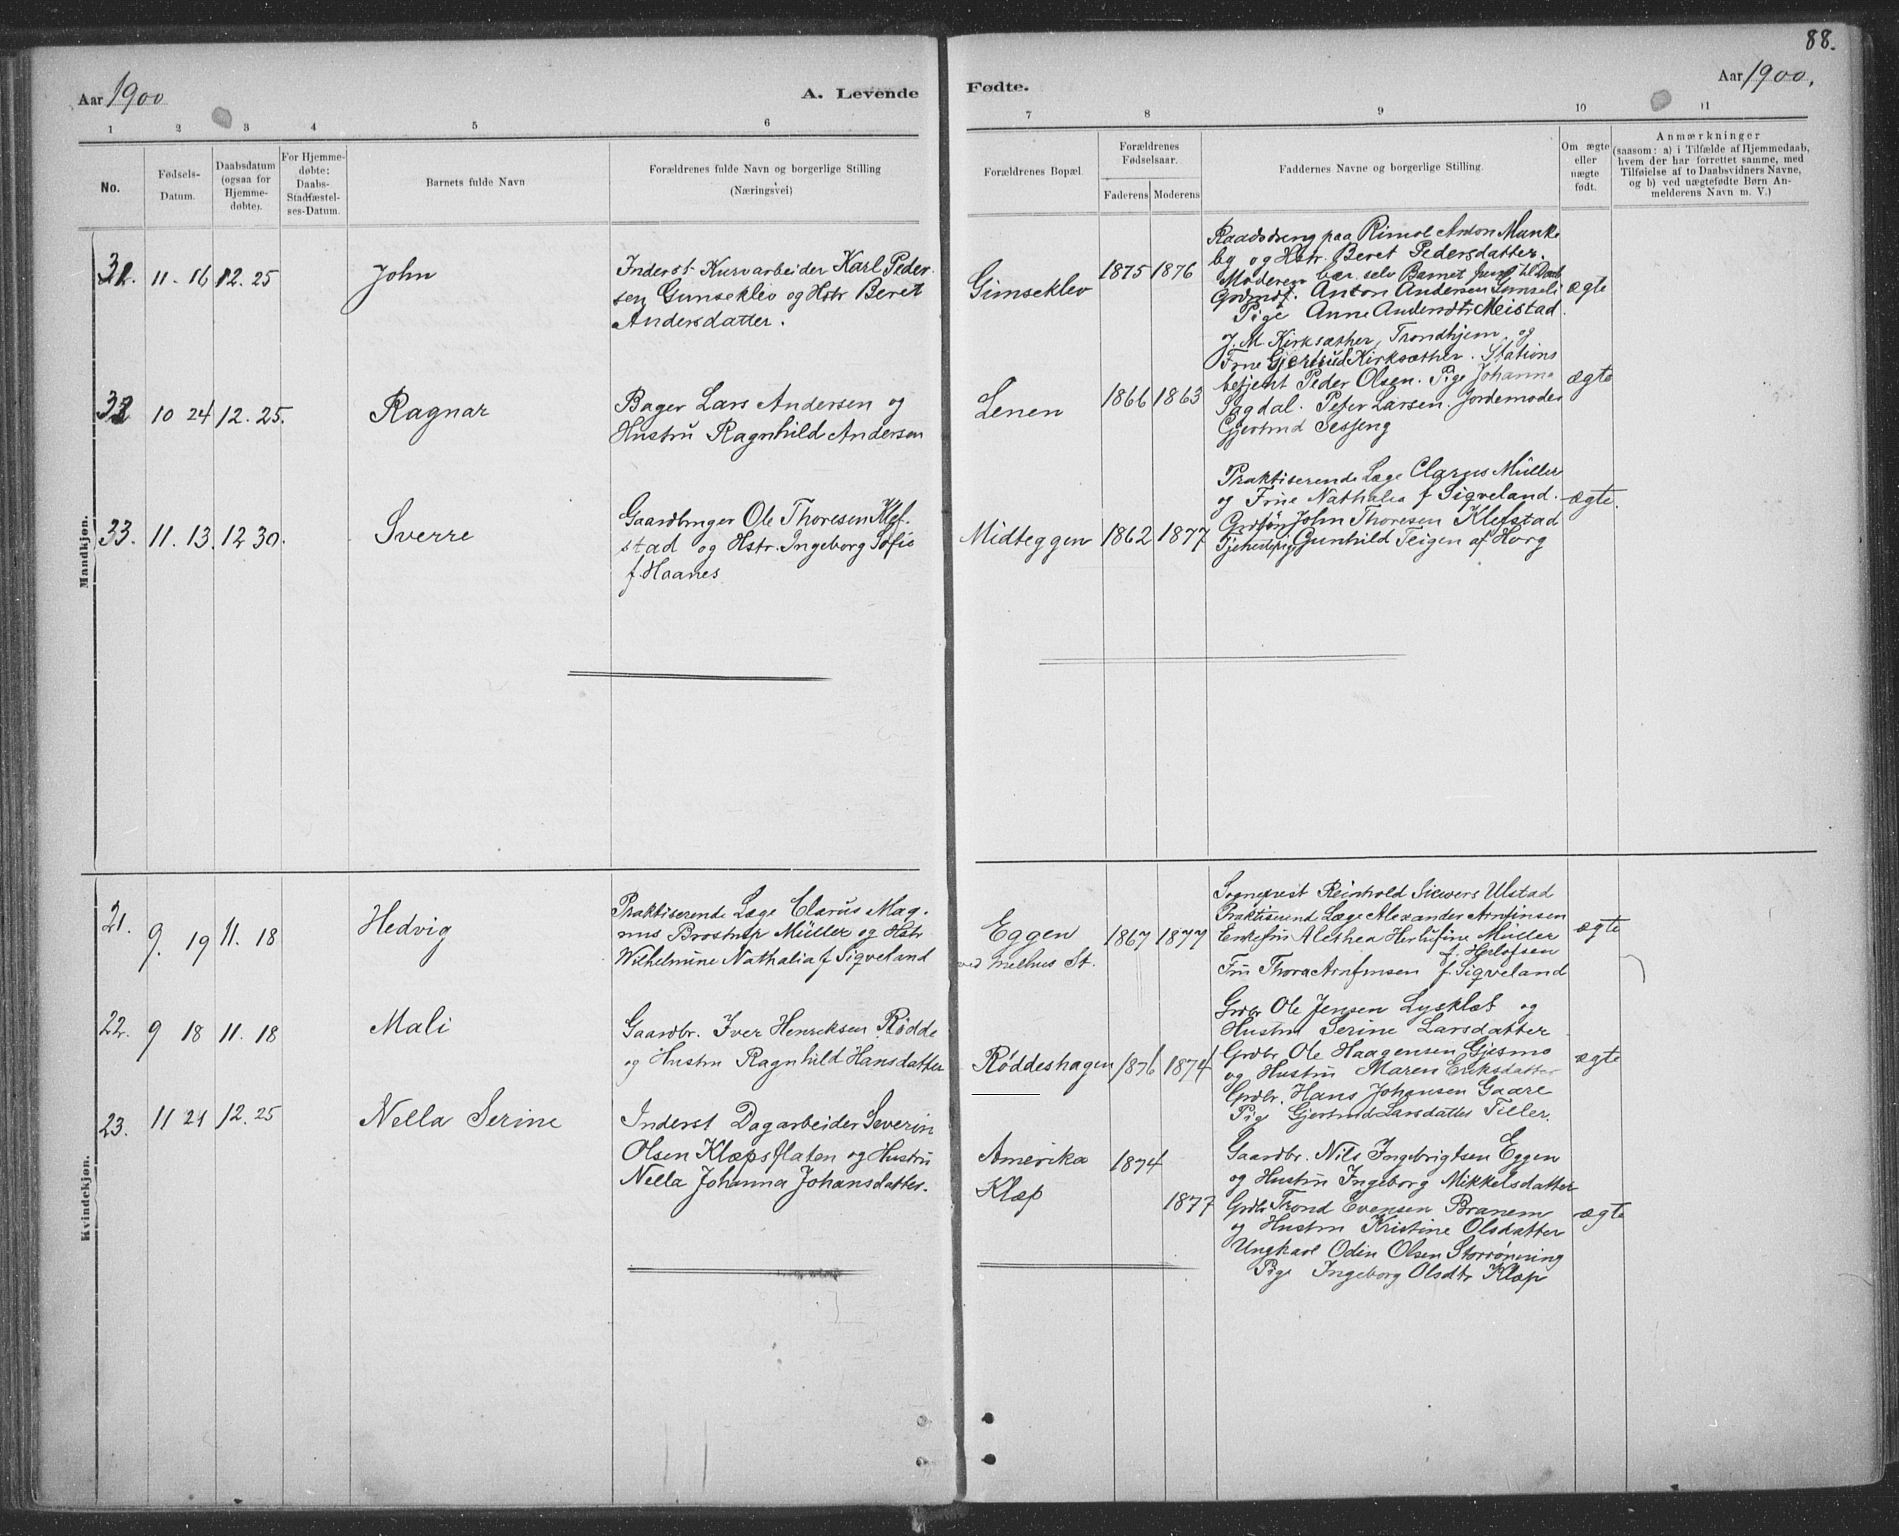 88.
Aar 1900
A. Levende
Fødte.
Aar 1900.
1 2 3 4 5 6
7 8 9 10 11
No.
Fødsels-
Datum.
Daabsdatum
(ogsaa for
Hjemme-
døbte).
For Hjemme-
døbte:
Daabs-
Stadfæstel-
ses-Datum.
Barnets fulde Navn
Forældrenes fulde Navn og borgerlige Stilling
(Næringsvei)
Forældrenes Bopæl.
Forældrenes
Fødselsaar.
Faderens Moderens
Faddernes Navne og borgerlige Stilling.
Om ægte
eller
uægte
født.
Anmærkninger
(saasom: a) i Tilfælde af Hjemmedaab,
hvem der har forrettet samme, med
Tilføielse af to Daabsvidners Navne,
og b) ved uægtefødte Børn An-
melderens Navn m. V.)
Mandkjøn.
31. 11. 16 12. 25
John
Inderst Kurvarbeider Karl Peder-
sen Gimseklev og Hstr Beret
Andersdatter.
Gimseklev
1875 1876
Raadsdreng paa Rimol Anton Munke
by og Hstr. Beret Pedersdatter.
Moderen bær. selv Barnet frem til Daab
Grdmdf. Anton Andersen
Pige Anne Andersdtr Meistad.
ægte
32 10 24 12. 25.
Ragnar
Bager Lars Andersen og
Hustru Ragnhild Andersen
Lenen
1866 1863
J. M. Kirksæther, Trondhjem, og
Frue Gjertrud Kirksæther. Stations
betjent Peder Olsen. Pige Johanna
Sagdal. Peter Larsen. Jordemoder
Gjertrud Sesseng
ægte
33. 11. 13. 12 30.
Sverre
Gaardbruger Ole Thoresen Klef-
stad og Hstr. Ingeborg Sofie
f. Haanes
Midteggen
1862 1877
Praktiserende Læge Clarus Müller
og Frue Nathalia f Sigveland.
Grdsøn John Thoresen Klefstad
Tjenestepige Gunhild Teigen af Horg
ægte.
Kvindekjøn.
21. 9. 19 11. 18
Hedvig
Praktiserende Læge Clarus Mag-
nus Brostrup Müller og Hstr
Wilhelmine Nathalia f Sigveland
Eggen
ved Melhus St.
1867 1877
Sogneprest Reinhold Siewers Ulstad
Praktiserend Læge Alexander Arnfinsen
Enkefru Alethea Herlufine Müller
f. Herlofsen
Fru Thora Arnfinsen f. Sigveland
ægte
22. 9 18 11. 18
Mali
Gaardbr. Iver Henriksen Rødde
og Hustru Ragnhild Hansdatter
Røddeshagen
1876 1874
Grdbr Ole Jensen Lysklæt og
Hustru Serine Larsdatter
Grdbr. Ole Haagensen Gjesmo
og Hustru Maren Eriksdatter
Grdbr. Hans Johansen Gaare
Pige Gjertrud Larsdatter Tiller.
ægte
23. 11 24 12. 25
Nella Serine
Inderst Dagarbeider Severin
Olsen Klæpsflaten og Hustru
Nella Johanna Johansdatter.
Amerika 1874
Klæp 1877
Gaardbr. Nils Ingebrigtsen Eggen
og Hustru Ingeborg Mikkelsdatter
Grdbr Trond Evensen Branem
og Hustru Kristine Olsdatter
Ungkarl Odin Olsen Storrønning
Pige Ingeborg Olsdtr Klæp
ægte